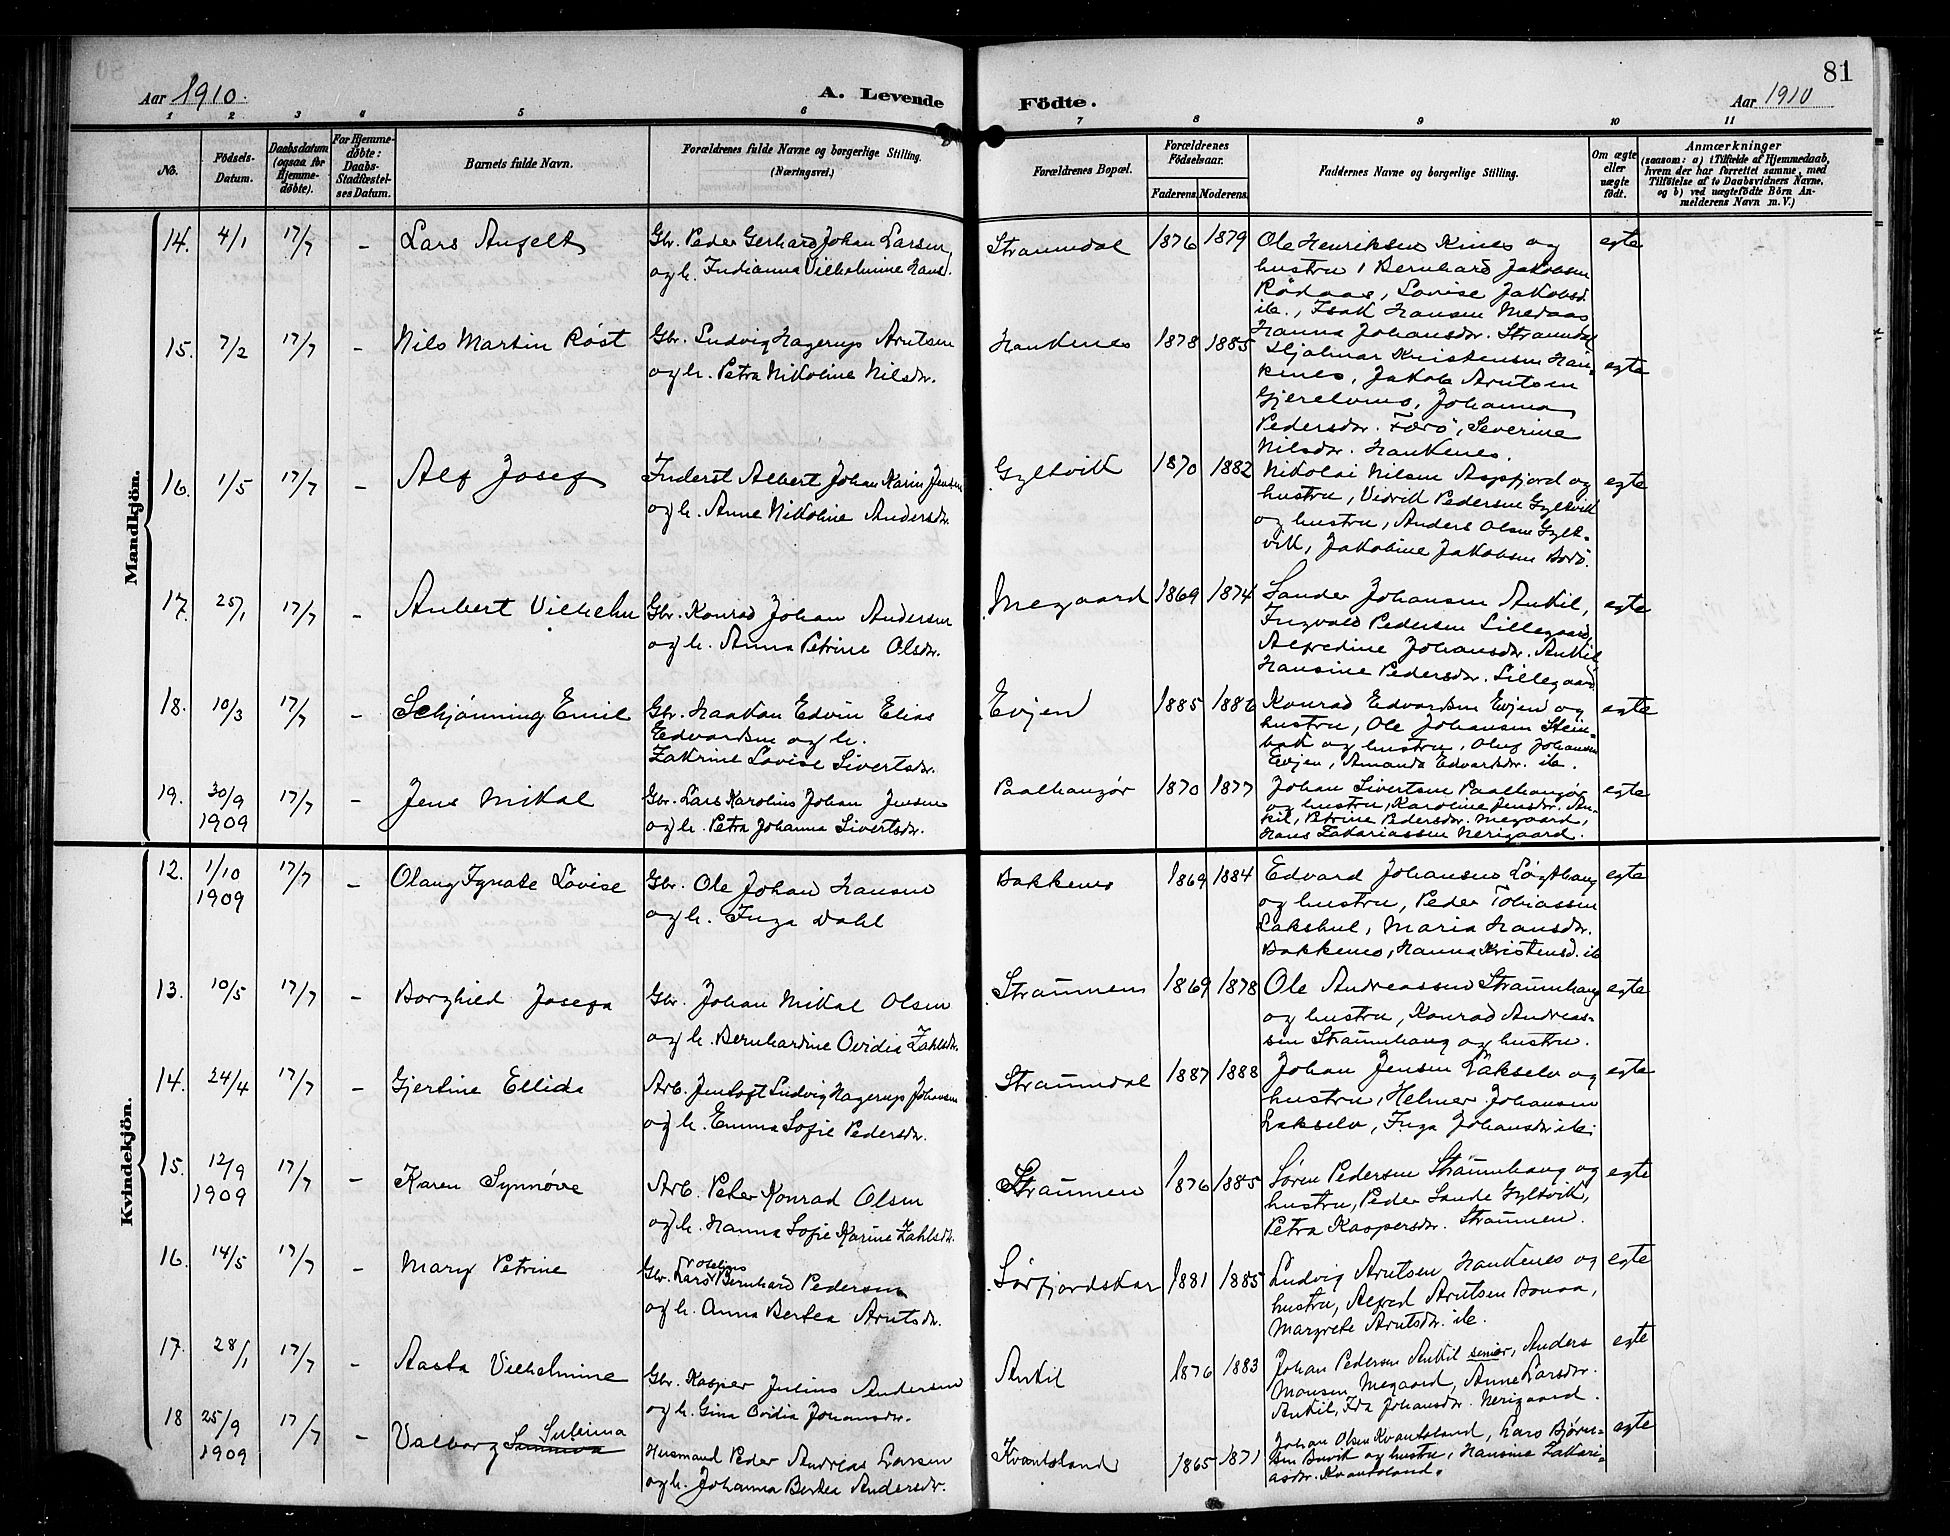 81
Aar 1910.
A. Levende
Födte.
Aar 1910
1 2 3 4 5 6 7 8 9 10 11
No.
Födsels-Datum.
Daabsdatum (ogsaa for Hjemme-döbte).
For Hjemme-döbte: Daabs-Stadfæstel-ses Datum.
Barnets fulde Navn.
Forældrenes fulde Navne og borgerlige Stilling.
(Næringsvei.)
Forældrenes Bopæl.
Forældrenes Födselsaar.
Faderens.
Moderens.
Faddernes Navne og borgerlige Stilling.
Om ægte eller uægte födt.
Anmærkninger
(saasom: a) i Tilfælde af Hjemmedaab,
hvem der har forrettet samme, med
Tilföielse af to Daabsvidners Navne,
og b) ved uægtefödte Börn An-
melderens Navn m. V.)
Mandkjön.
14. 4/1 17/7 – Lars Angelt
Gbr. Peder Gerhard Johan Larsen
og h. Indianna Vilhelmine Hans.
Straumdal 1876 1879
Ole Henriksen Kines og
hustru, Bernhard Jakobsen
Rödaas, Lovise Jakobsd.
ib., Isak Hansen Medaas
Hanna Johansdr. Straumdal
egte
15. 7/2 17/7 – Nils Martin Röst
Gbr. Ludvig Hagerup Arntsen
og h. Petra Nikoline Nilsdr.
Hankenes 1878 1885
Hjalmar Kristensen Han-
kenes, Jakob Arntsen
Gjerelvnes, Johanna
Pedersdr. Færö, Severine
Nilsdr. Hankenes.
egte
16. 1/5 17/7 – Alf Josef
Inderst Albert Johan Karin Jensen
og h. Anne Nikoline Andersdr.
Gyltvik 1870 1882
Nikolai Nilsen Aspfjord og
hustru, Vidrik Pedersen Gyltvik
og hustru, Anders Olsen Gylt-
vik, Jakobine Jakobsen Borö.
egte
17. 25/1 17/7 – Anbert Vilhelm
Gbr. Konrad Johan Andersen
og h. Anna Petrine Olsdr.
Megaard 1869 1874
Sander Johansen Ankil,
Ingvald Pedersen Lillegaard,
Alfredine Johansdr. Ankil
Hansine Pedersdr. Lillegaard
egte
18. 10/3 17/7 – Schjönning Emil
Gbr. Haakon Edvin Elias
Edvardsen og h.
Zakrine Lovise Sivertsdr.
Evjen 1885 1882
Konrad Edvardsen Evjen og
hustru, Ole Johansen Stein-
bak og hustru, Oluf Johansen
Evjen, Amanda Edvardsdr. ib.
egte
19. 30/9 1909 17/7 – Jens Mikal
Gbr. Lars Karolius Johan Jensen
og h. Petra Johanna Sivertsdr.
Paalhangör 1870 1877
Johan Sivertsen Paalhangör
og hustru, Karoline Jensdr. An-
kil, Petrine Pedersdr. Megaard,
Hans Zakariassen Nerigaard.
egte
Kvindekjön.
12. 1/10 1909 17/7 – Olaug Ignate Lovise
Gbr. Ole Johan Hansen
og h. Inga Dahl
Bakkenes 1869 1884
Edvard Johansen Lögthaug
og hustru, Peder Tobiassen
Lakshul, Maria Hansdr.
Bakkenes, Hanna Kristensd. ib
egte
13. 10/5 17/7 – Borghild Josefa
Gbr. Johan Mikal Olsen
og h. Bernhardine Ovidia Zahlsdr.
Straumen 1869 1878
Ole Andreassen Straumhaug
og hustru, Konrad Andreas-
sen Straumhaug og hustru.
egte
14. 24/4 17/7 – Gjertine Ellida
Arb. Jentoft Ludvig Hagerup Johansen
og h. Emma Sofie Pedersdr.
Straumdal 1887 1888
Johan Jensen Lakselv og
hustru, Helmer Johansen
Lakselv, Inga Johansdr. ib.
egte
15. 12/9 1909 17/7 – Karen Synnöve
Arb. Peter Konrad Olsen
og h. Hanna Sofie Karine Zahlsdr.
Straumen 1876 1885
Sören Pedersen Straumhaug og
hustru, Peder Sande Gyltvik,
Petra Kaspersdr. Straumen.
egte
16. 14/5 17/7 – Mary Petrine
Gbr. Lars Bernhard Pedersen
og h. Anna Bertea Arntsdr.
Sörfjordskar 1881 1885
Ludvig Arntsen Hankenes og
hustru, Alfred Arntsen Bonaa,
Margrete Arntsdr. ib.
egte
17. 28/1 17/7 – Aasta Vilhelmine
Gbr. Kasper Julius Andersen
og h. Gina Ovidia Johansdr.
Ankil 1876 1883
Johan Pedersen Ankil senior, Anders
Monsen Megaard, Anne Larsdr.
Ankil, Ida Johansdr. Nerigaard.
egte
18 25/9 1909 17/7 – Valborg Sunniva Subrina
Husmand Peder Andreas Larsen
og h. Johanna Bertea Andersdr.
Kvantoland 1865 1871
Johan Olsen Kvantoland, Lars Björn-
sen Buvik og hustru, Hansine Zakari-
asdr. Kvantoland.
egte